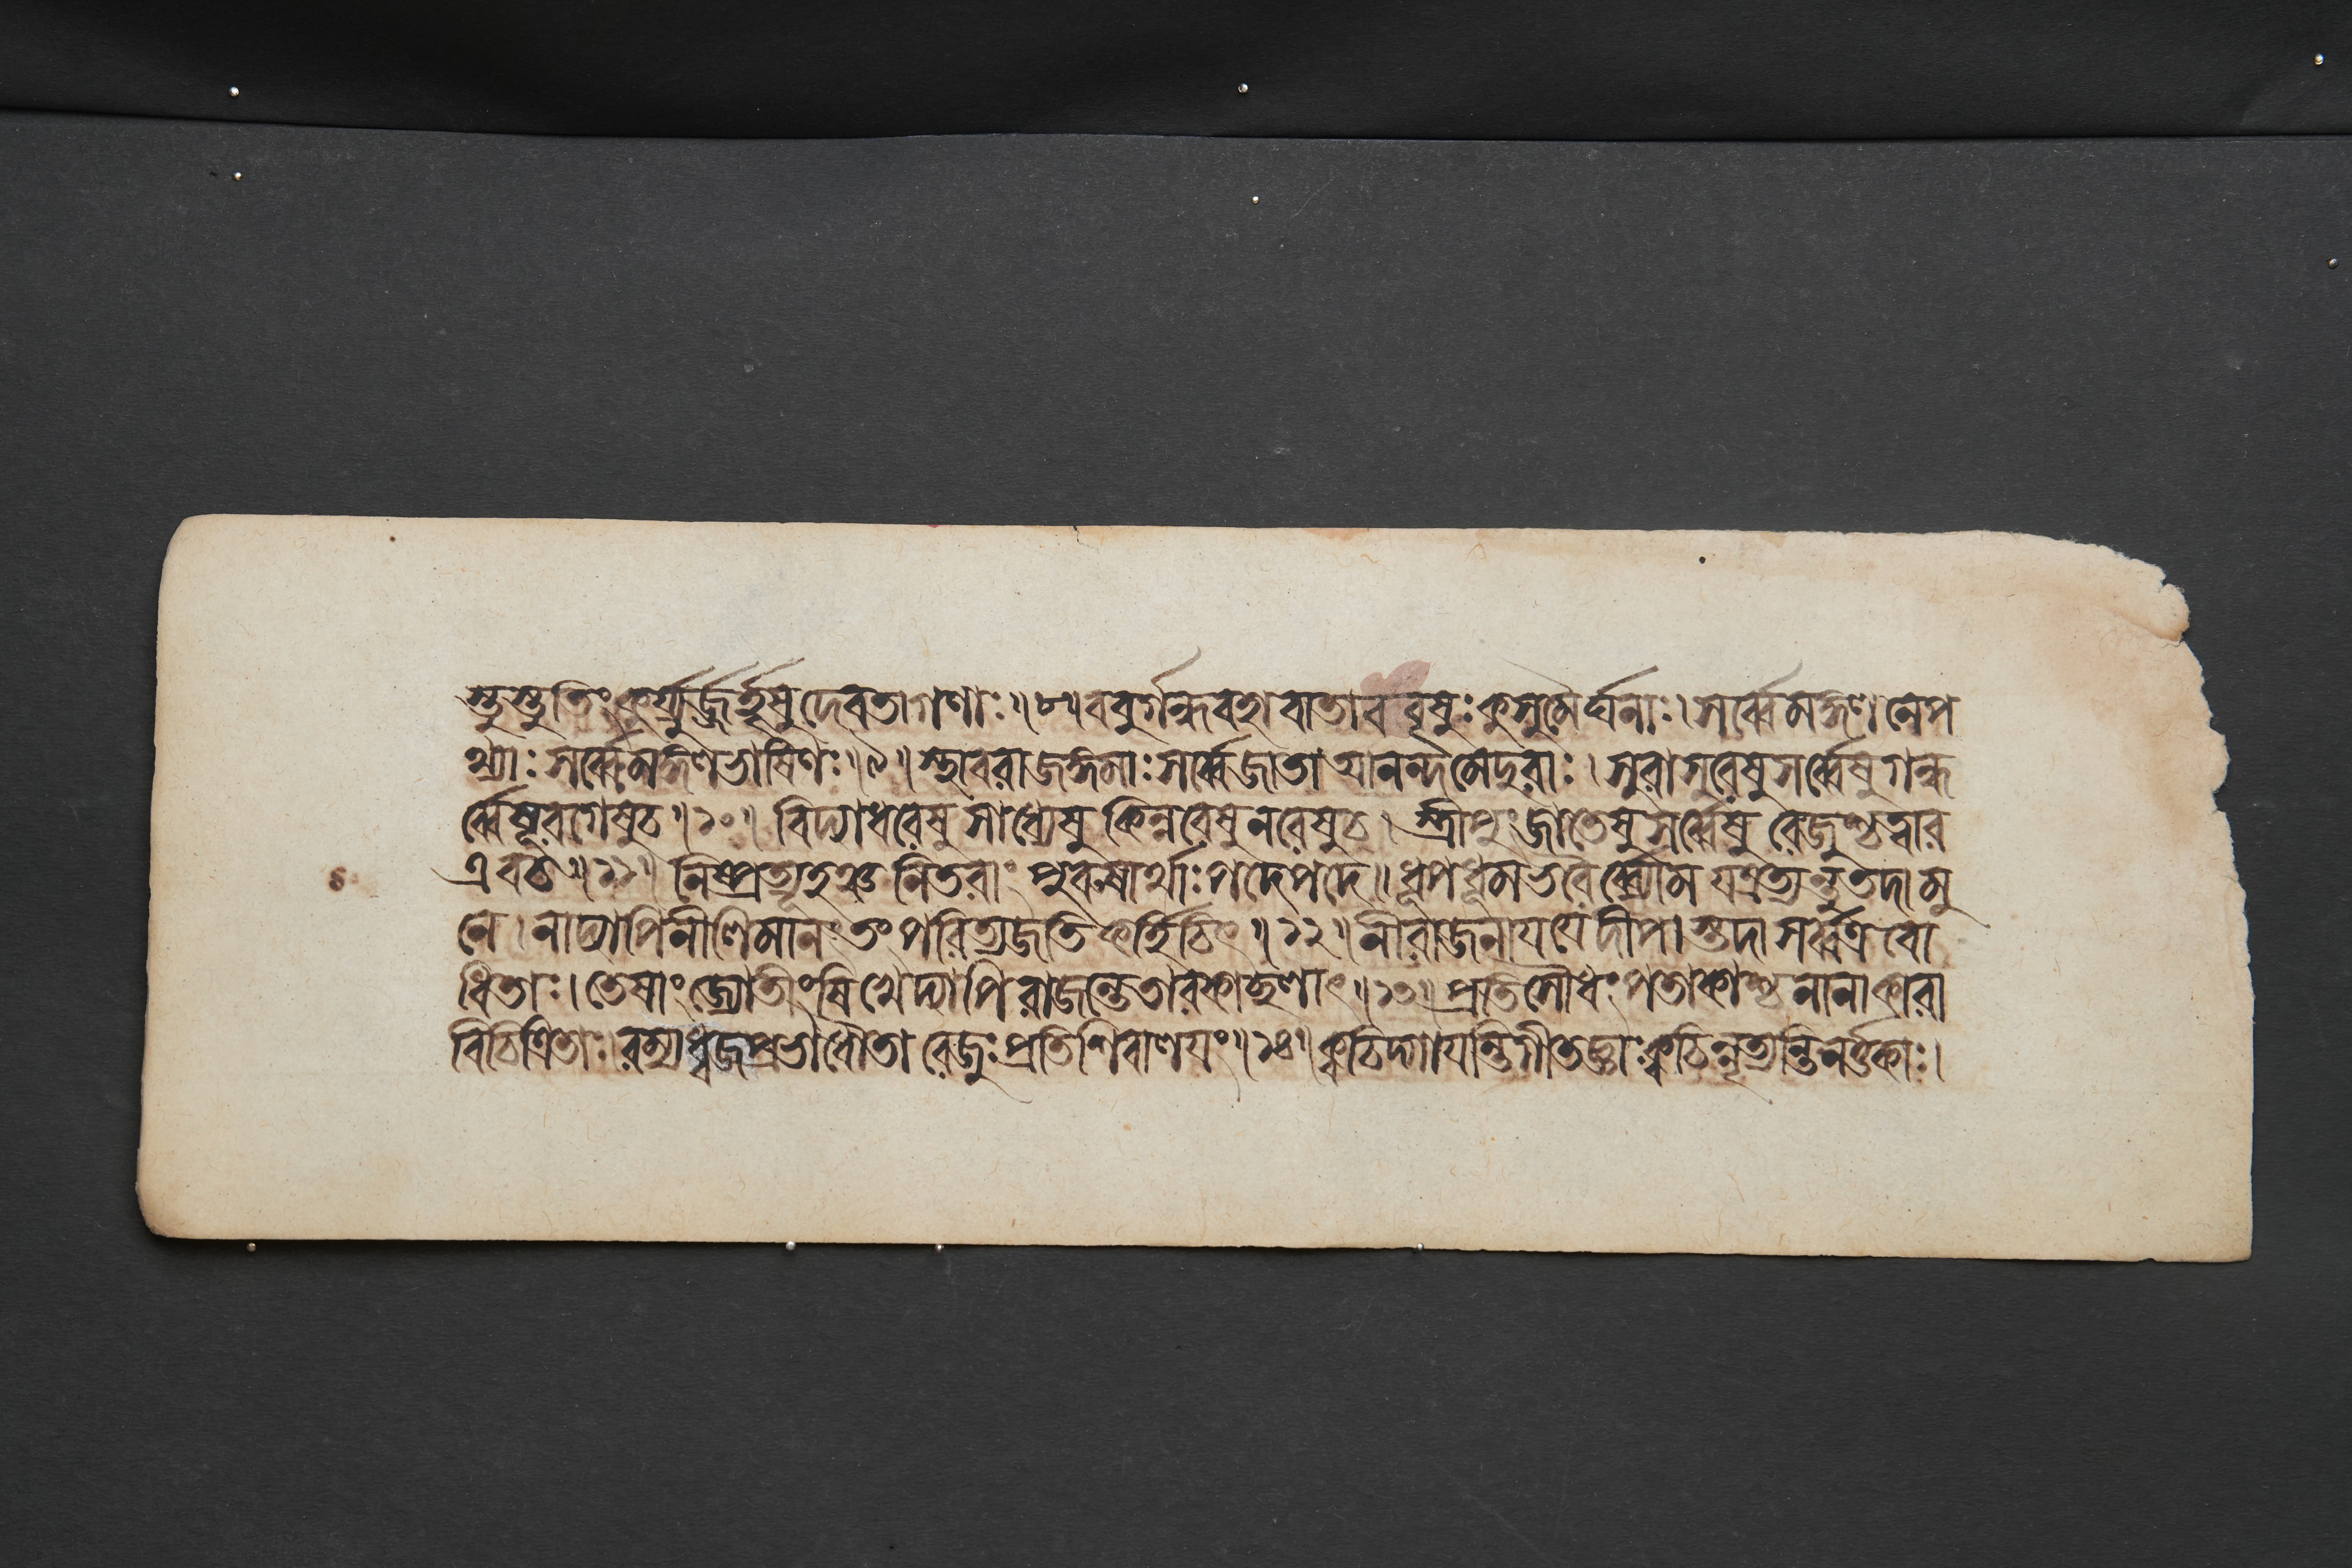 স্তুস্তুতিং কুর্য্যুর্জহৃষু দেবতাগণাঃ ॥৮॥ ববুর্গন্ধবহা বাতা ববৃষুঃ কুসুমৈর্ঘনাঃ। সর্ব্বে মঙ্গল নেপ
থ্যাঃ সর্ব্বে মঙ্গলভাষিণঃ ॥৯॥ স্থাবরা জঙ্গমাঃ সর্ব্বে জাতা আনন্দমেদুরাঃ। সুরাসুরেষু সর্ব্বেষু গন্ধ
র্ব্বেষূরগেষু চ ॥১০॥ বিদ্যাধরেষু সাধ্যেষু কিন্নরেষু নরেষু চ। স্ত্রীপুং জাতেষু সর্ব্বেষু রেজুশ্চত্বার
এব চ ॥১১॥ নিষ্প্রত্যূহঞ্চ নিতরাং পুরুষার্থাঃ পদে পদে॥ ধূপধূমভরৈর্ব্ব্যোম তদা মু
নে। নাদ্যাপি নীলিমানং তং পরিত্যজতি কর্হিচিৎ ॥১২॥ নীরাজনায যে দীপাস্তদা সর্ব্বত্র বো
ধিতাঃ। তেষাং জ্যোতীংষি খেদ্যাপি রাজন্তে তারকাছলাৎ ॥১৩॥ প্রতিসৌধং পতাকাশ্চ নানাকারা
বিচিত্রিতাঃ। রত্নধ্বজপ্রভাধৌতা রেজুঃ প্রতিশিবালযং ॥১৪॥ ক্বচিদ্গাযন্তি গীতজ্ঞাঃ ক্বচিন্নৃত্যন্তি নর্ত্তকাঃ।